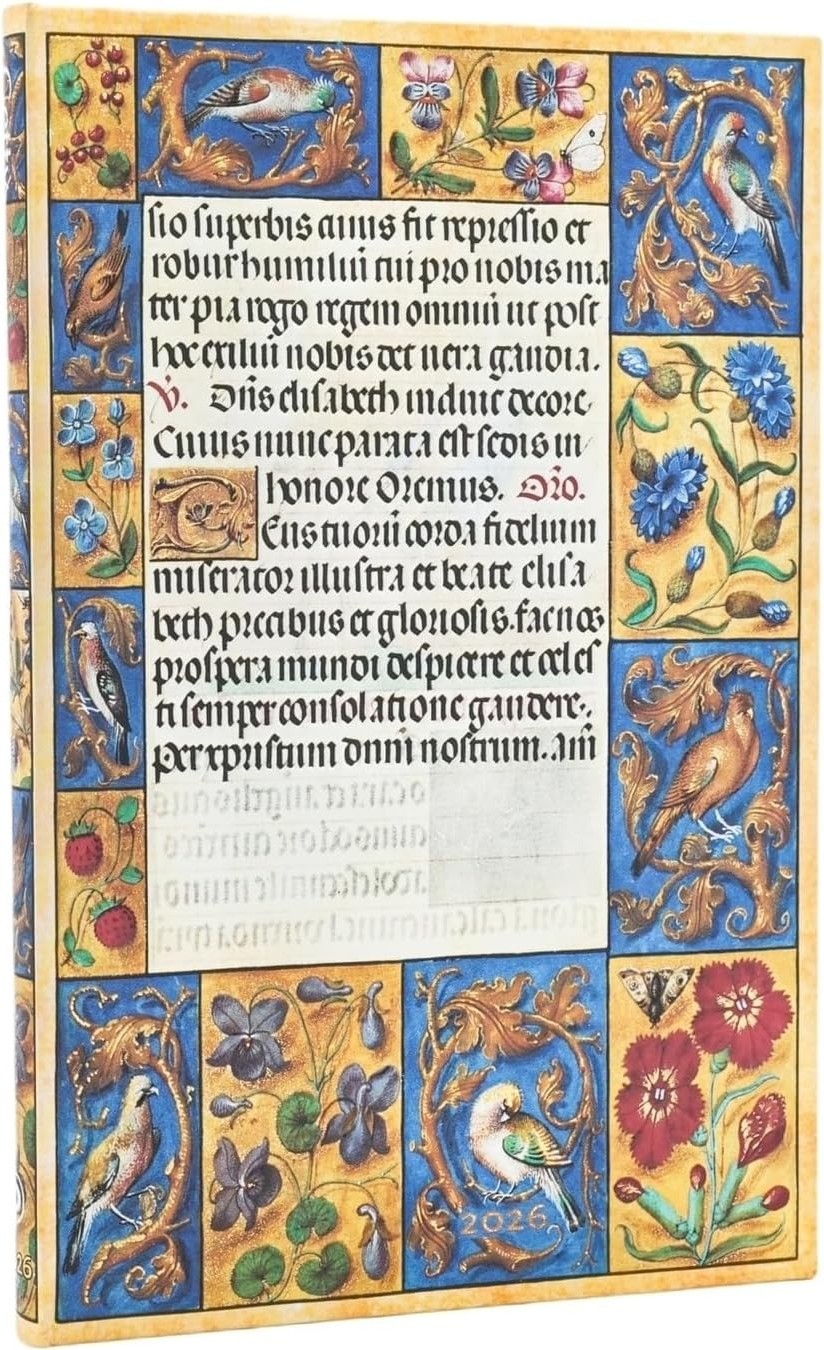 sio superbis cuius fit repressio et
robur humiliū tui pro nobis ma
ter pia rogo regem omniū ut post
hoc exiliū nobis det uera gaudia.
V. Dn̄s elisabeth induit decore
Cuius nunc parata est sedis in
honore Oremus. Or̄o.
Deus tuorū corda fidelium
miserator illustra et beate elisa
beth precibus et gloriosis. fac nos
prospera mundi despicere et celes
ti semper consolatione gaudere.
Per xpristum dnm̄ nostrum. Am̄
2026
26